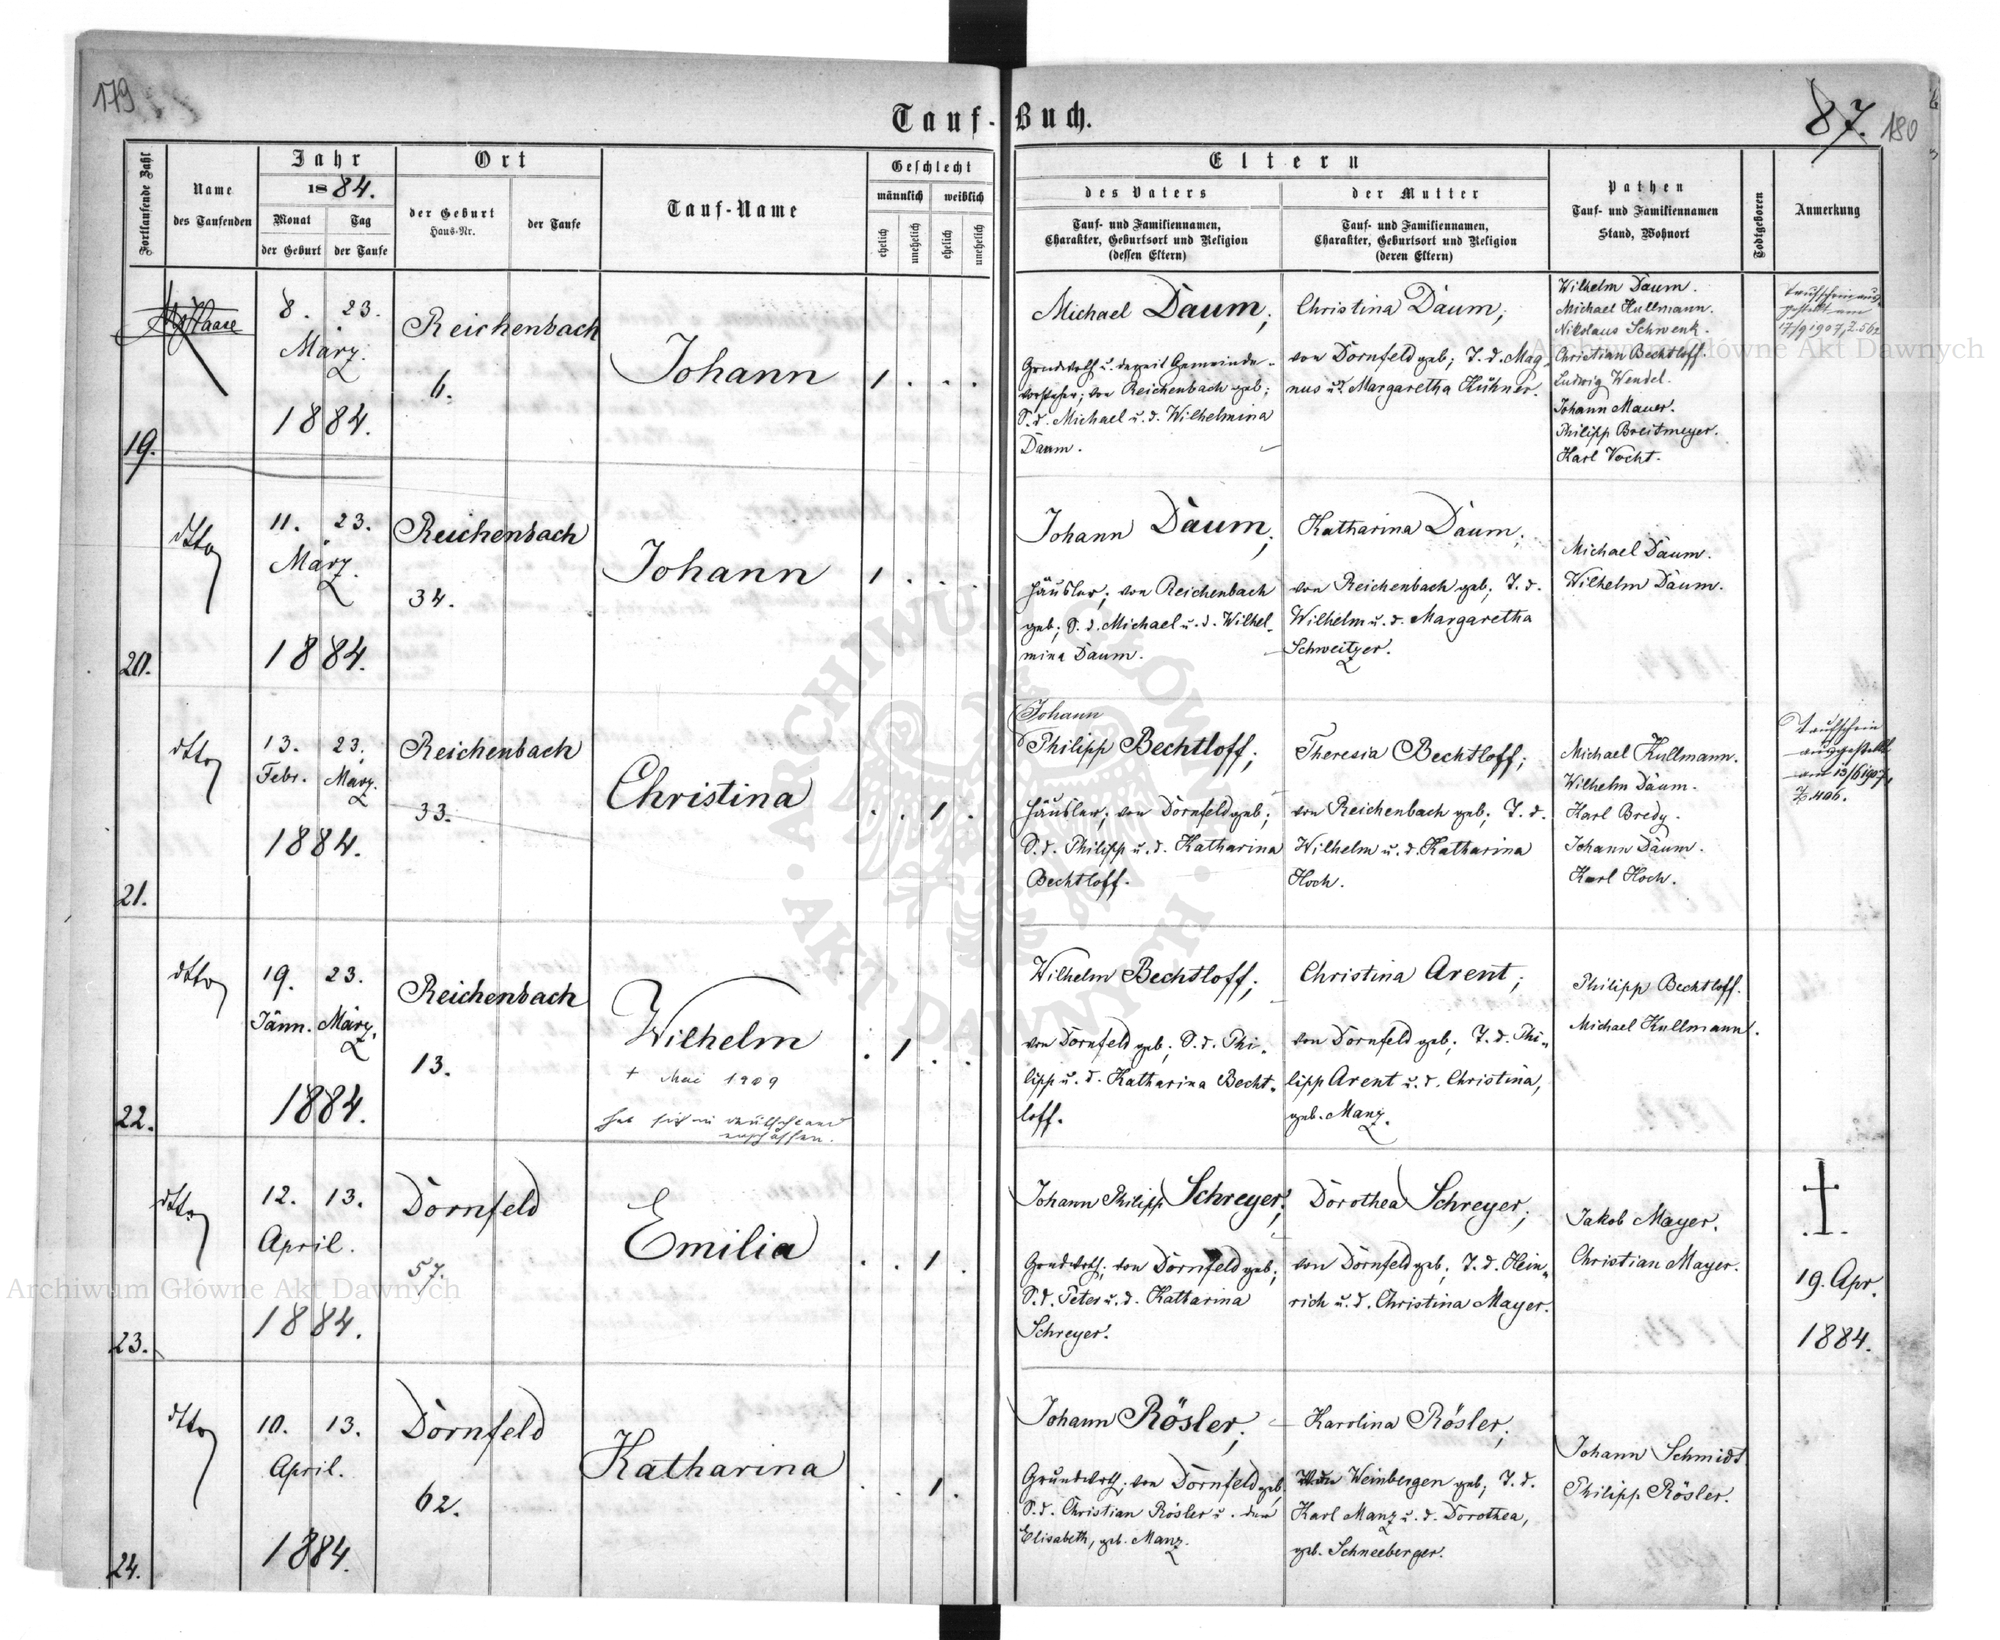 179
Tauf-Buch.
87. 180
Fortlaufende Zahl
Name
des Taufenden
Jahr
1884.
Monat
der Geburt
Tag
der Taufe
Ort
der Geburt
Haus-Nr.
der Taufe
Tauf-Name
Geschlecht
männlich
weiblich
ehelich
unehelich
ehelich
unehelich
Eltern
des Vaters
Tauf- und Familiennamen,
Charakter, Geburtsort und Religion
(dessen Eltern)
der Mutter
Tauf- und Familiennamen,
Charakter, Geburtsort und Religion
(deren Eltern)
Pathen
Tauf- und Familiennamen
Stand, Wohnort
Todtgeboren
Anmerkung
19.
8. 23.
März.
1884.
Reichenbach
6.
Johann
1 . . .
Michael Daum;
Grundwirth u. derzeit Gemeinde-
vorsteher; von Reichenbach geb;
S. d. Michael u. d. Wilhelmina
Daum.
Christina Daum;
von Dornfeld geb; T. d. Mag-
nus u. Margaretha Kühner.
Wilhelm Daum.
Michael Kullmann.
Nikolaus Schwenk.
Christian Bechtloff.
Ludwig Wendel.
Johann Mauer.
Philipp Breitmeyer.
Karl Vocht.
Taufschein aus-
gestellt am
17/9 1907, Z. 562
20.
dtto
11. 23.
März.
1884.
Reichenbach
34.
Johann
1 . . .
Johann Daum;
Häusler; von Reichenbach
geb; S. d. Michael u. d. Wilhel-
mina Daum.
Katharina Daum;
von Reichenbach geb; T. d.
Wilhelm u. d. Margaretha
Schweitzer.
Michael Daum.
Wilhelm Daum.
21.
dtto
13. 23.
Febr. März.
1884.
Reichenbach
33.
Christina
. . 1 .
Johann
Philipp Bechtloff;
Häusler; von Dornfeld geb;
S. d. Philipp u. d. Katharina
Bechtloff.
Theresia Bechtloff;
von Reichenbach geb; T. d.
Wilhelm u. d. Katharina
Hoch.
Michael Kullmann.
Wilhelm Daum.
Karl Bredy.
Johann Daum.
Karl Hoch.
Taufschein
ausgestellt
am 13/6 1907,
Z. 406.
22.
dtto
19. 23.
Jänn. März.
1884.
Reichenbach
13.
Wilhelm
+ Mai 1909
hat sich in Deutschland
erschossen.
. 1 . .
Wilhelm Bechtloff;
von Dornfeld geb; S. d. Phi-
lipp u. d. Katharina Becht-
loff.
Christina Arent;
von Dornfeld geb; T. d. Phi-
lipp Arent u. d. Christina,
geb. Manz.
Philipp Bechtloff.
Michael Kullmann.
23.
dtto
12. 13.
April.
1884.
Dornfeld
57.
Emilia
. . 1 .
Johann Philipp Schreyer;
Grundwirth; von Dornfeld geb;
S. d. Peter u. d. Katharina
Schreyer.
Dorothea Schreyer;
von Dornfeld geb; T. d. Hein-
rich u. d. Christina Mayer.
Jakob Mayer.
Christian Mayer.
19. Apr.
1884.
24.
dtto
10. 13.
April.
1884.
Dornfeld
62.
Katharina
. . 1 .
Johann Rösler;
Grundwirth; von Dornfeld geb;
S. d. Christian Rösler u. der
Elisabeth, geb. Manz.
Karolina Rösler;
von Weinbergen geb; T. d.
Karl Manz u. d. Dorothea,
geb. Schneeberger.
Johann Schmidt
Philipp Rösler.
Archiwum Główne Akt Dawnych
Archiwum Główne Akt Dawnych
ARCHIWUM GŁÓWNE · AKT DAWNYCH ·